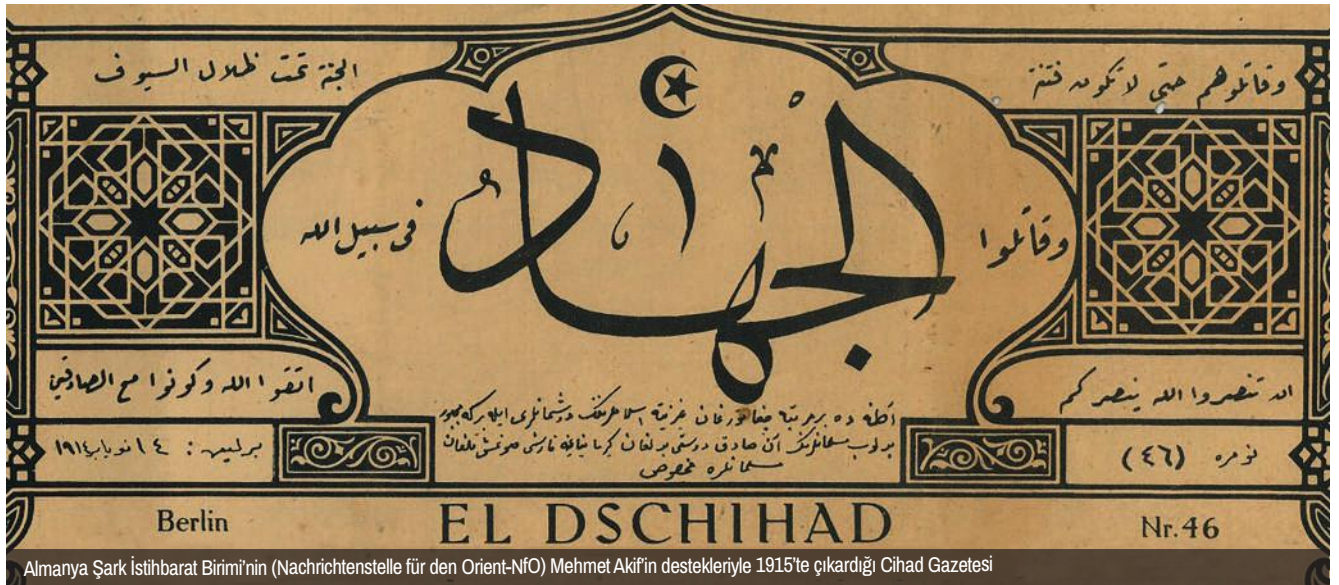 وقاتلوهم حتى لا تكون فتنة
الجنة تحت ظلال السيوف
الجهاد
وقاتلوا
فى سبيل الله
ان تنصروا الله ينصركم
اتقوا الله وكونوا مع الصادقين
مسلمانلره مخصوص
نومره (٤٦)
برلين : ١٤ نويابر ١٩١٤
Berlin EL DSCHIHAD Nr.46
Almanya Şark İstihbarat Birimi'nin (Nachrichtenstelle für den Orient-NfO) Mehmet Akif'in destekleriyle 1915'te çıkardığı Cihad Gazetesi